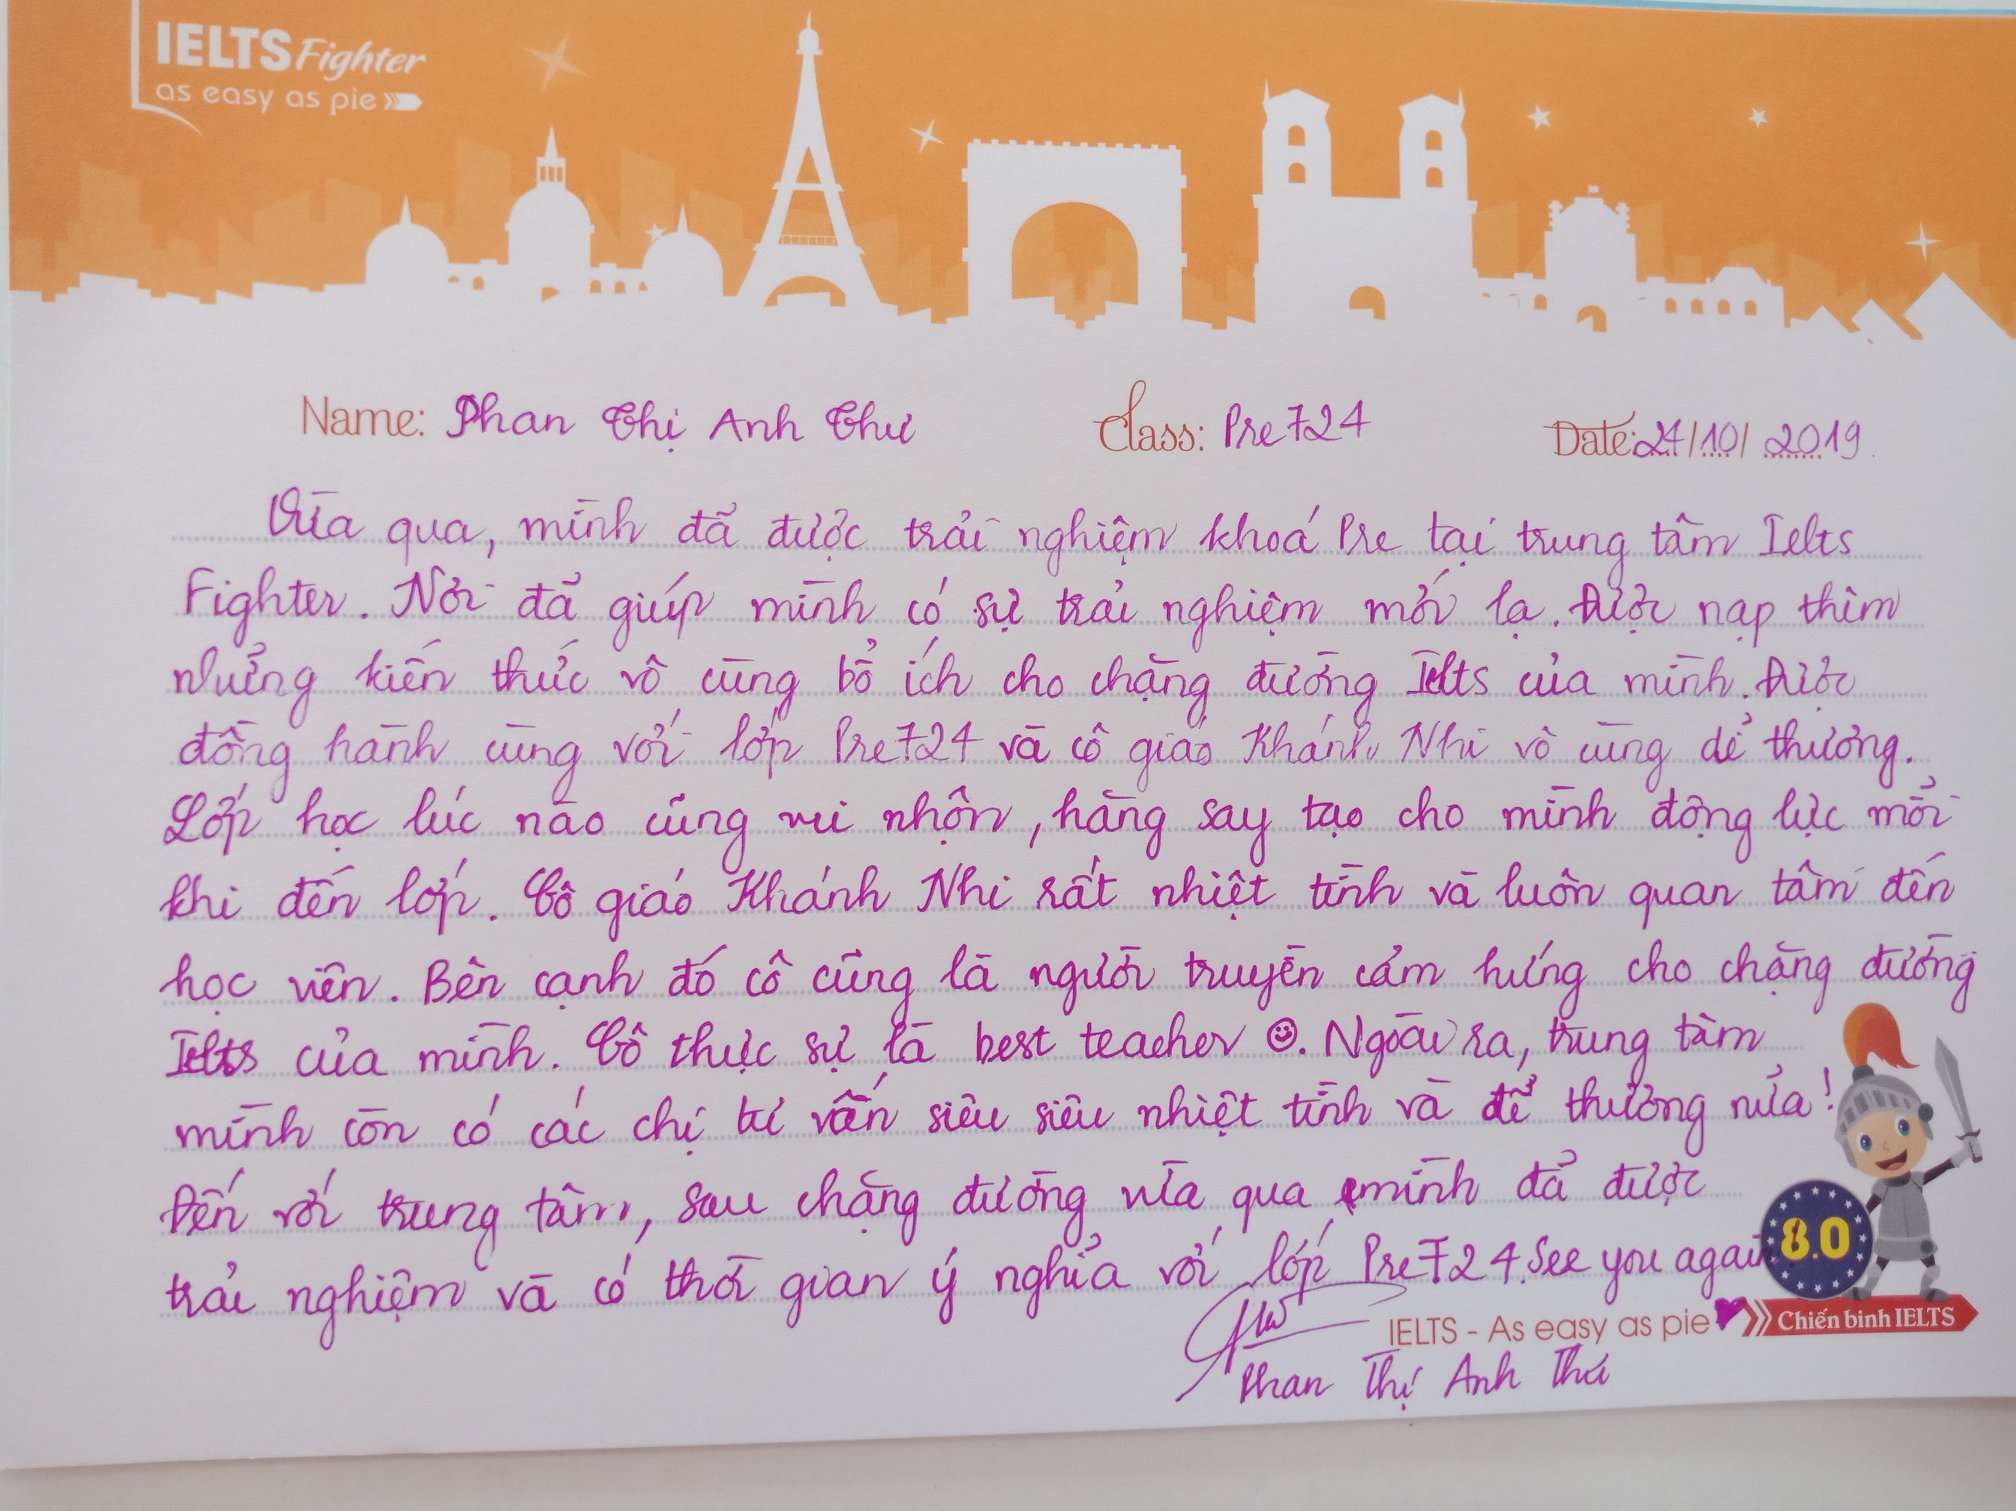 IELTS Fighter
as easy as pie
Name: Phan Thị Anh Thư Class: Pre724 Date: 24/10/2019
Vừa qua, mình đã được trải nghiệm khoá Pre tại trung tâm Ielts
Fighter. Nơi đã giúp mình có sự trải nghiệm mới lạ. Được nạp thêm
những kiến thức vô cùng bổ ích cho chặng đường Ielts của mình. Được
đồng hành cùng với lớp Pre724 và cô giáo Khánh Nhi vô cùng dể thương.
Lớp học lúc nào cũng vui nhộn, hăng say tạo cho mình động lực mỗi
khi đến lớp. Cô giáo Khánh Nhi rất nhiệt tình và luôn quan tâm đến
học viên. Bên cạnh đó cô cũng là người truyền cảm hứng cho chặng đường
Ielts của mình. Cô thực sự là best teacher ☺. Ngoài ra, trung tâm
mình còn có các chị tư vấn siêu siêu nhiệt tình và dể thương nửa!
Đến với trung tâm, sau chặng đường vừa qua mình đã được
trải nghiệm và có thời gian ý nghĩa với lớp Pre724. See you again
8.0
IELTS - As easy as pie Chiến binh IELTS
Phan Thị Anh Thư